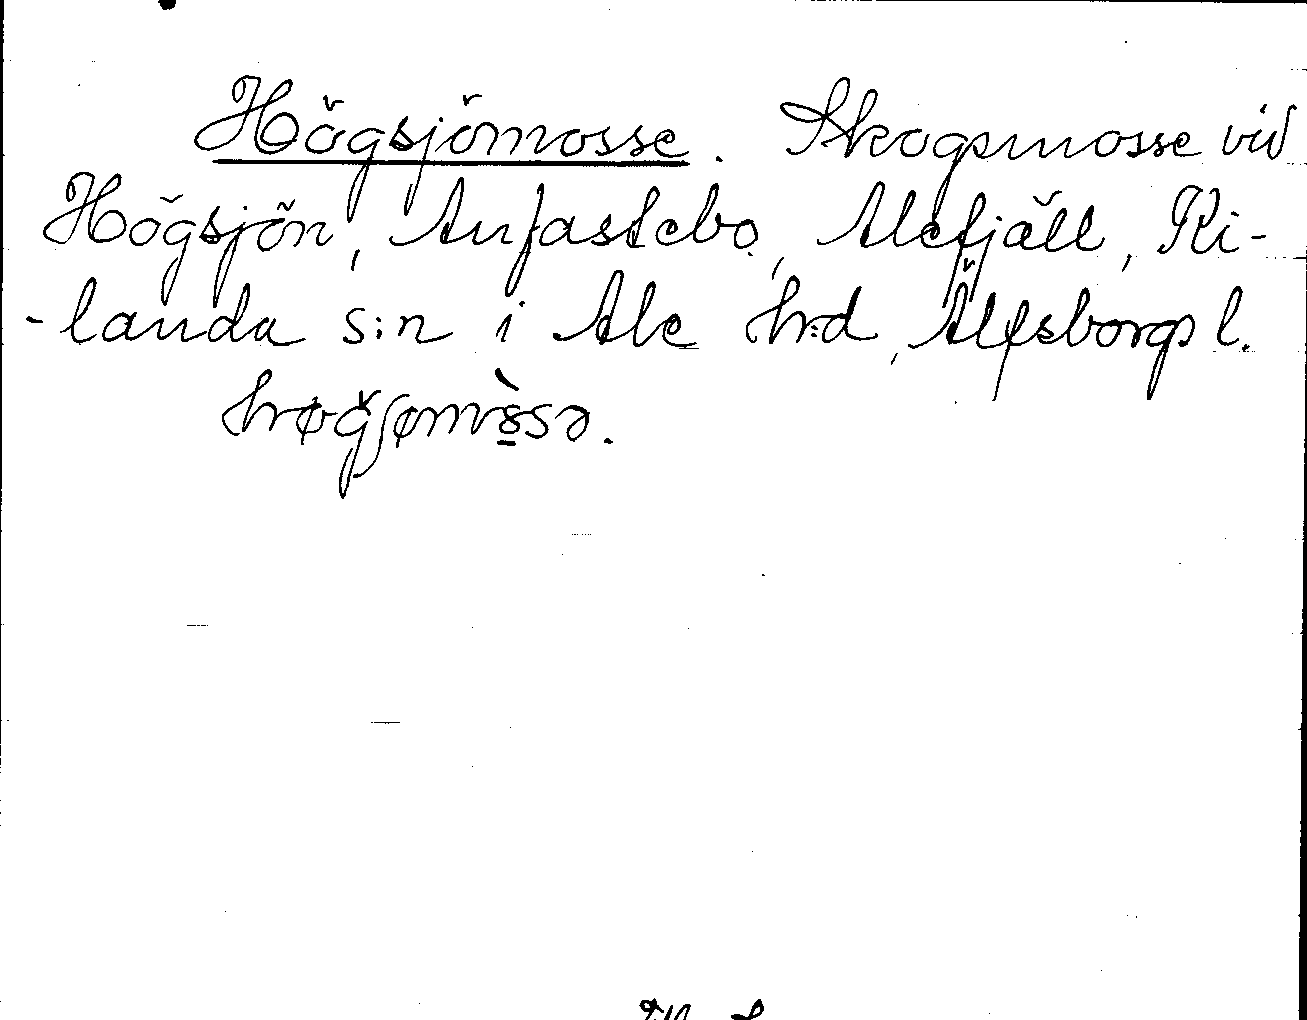 Högsjömosse. Skogsmosse vid
Högsjön, Anfastebo, Alefjäll, Ki-
-landa s:n i Ale h:d, Älfsborgs l.